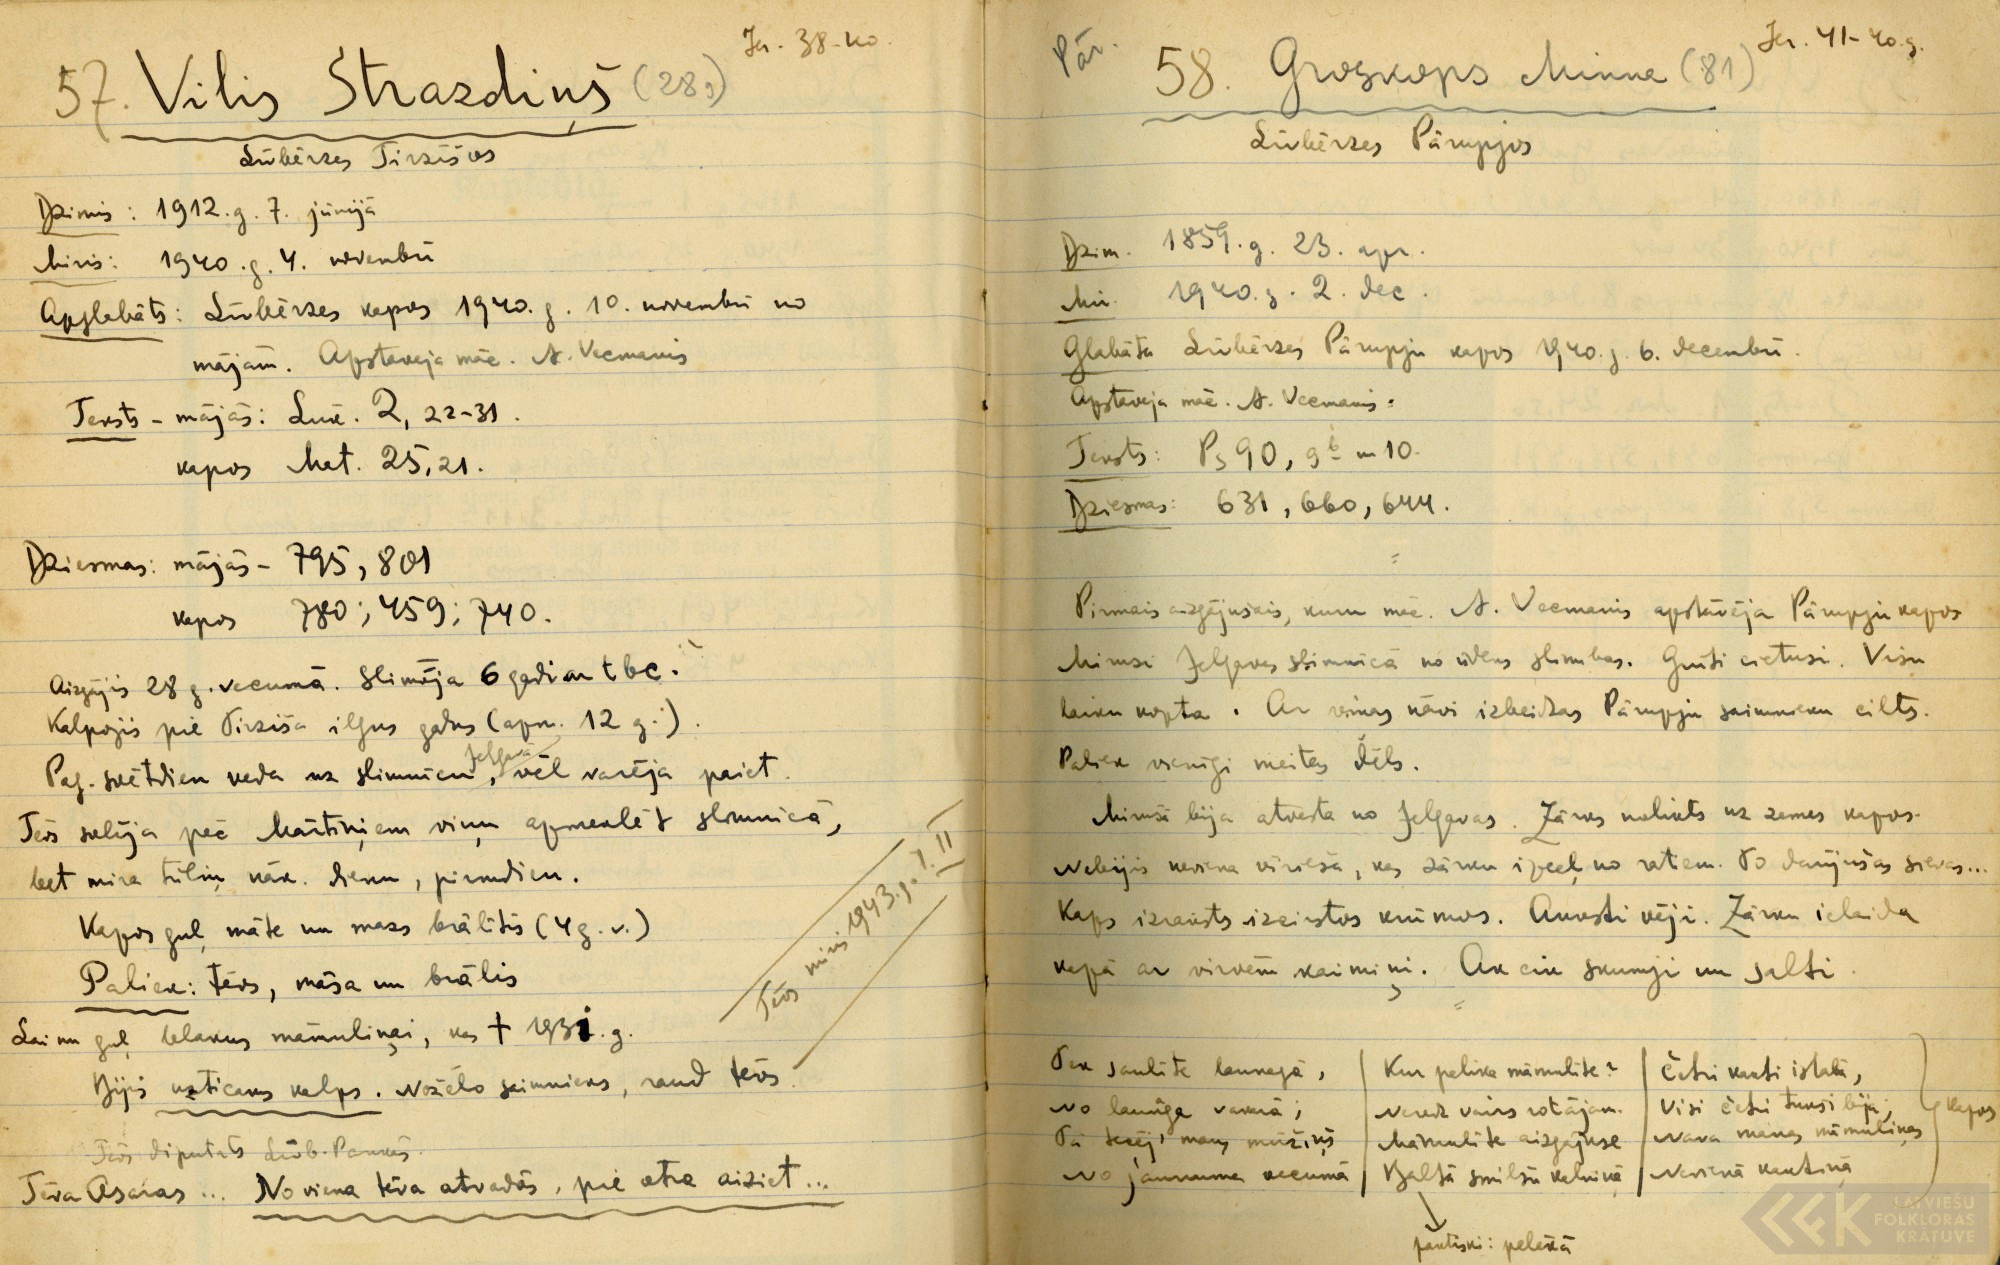 57. Vilis Strazdiņš (28g)
Jer. 38-40.
Līvbērzes Tirzīšos
Dzimis: 1912.g. 7. jūnijā
Miris: 1940.g. 4. novembrī
Apglabāts: Līvbērzes kapos 1940.g. 10. novembrī no
mājām. Apstāvēja māc. A. Vecmanis
Teksts - mājās: Lūk. 2, 22-31.
kapos Mat. 25,21.
Dziesmas: mājās - 795, 801
kapos 780; 459; 740.
Aizgājis 28 g. vecumā. Slimoja 6 gadi ar tbc.
Kalpojis pie Tirzīša ilgus gadus (apm. 12 g.).
Pag. svētdien veda uz slimnīcu Jelgavā, vēl varēja paiet.
Tēvs solīja pēc Mārtiņiem viņu apmeklēt slimnīcā,
bet mira tūliņ nāk. dienu, pirmdien.
Kapos guļ māte un mazs brālītis (4 g. v.)
Paliek: tēvs, māsa un brālis
Lai nu guļ blakus māmuliņai, kas † 1931.g.
Bijis uzticams kalps. Nožēlo saimnieks, raud tēvs.
Tēvs miris 1943.g. 7.II
Tēvs diputāts Līvb. Pankās.
Tēva Asaras... No viena tēva atvadās, pie otra aiziet...
Pār.
58. Groskops Minna (81)
Jer. 41-40.g.
Līvbērzes Pārupjos
Dzim. 1859.g. 23. apr.
Mir. 1940.g. 2. dec.
Glabāta Līvbērzes Pārupju kapos 1940.g. 6. decembrī.
Apstāvēja māc. A. Vecmanis.
Teksts: Ps 90, 9b un 10.
Dziesmas: 631, 660, 644.
Pirmais aizgājušais, kuru māc. A. Vecmanis apstāvēja Pārupju kapos
Mirusi Jelgavas slimnīcā no ūdens slimības. Grūti cietusi. Visu
laiku kopta. Ar viņas nāvi izbeidzas Pārupju saimnieku cilts.
Paliek vienīgi meitas dēls.
Mirusī bija atvesta no Jelgavas. Zārks nolikts uz zemes kapos.
Nebijis neviena vīrieša, kas zārku izceļ no ratiem. To darījušas sievas...
Kaps izrakts izcirstos krūmos. Auksti vēji. Zārku ielaida
kapā ar virvēm kaimiņi. Ak cik skumji un salti.
Tek saulīte launagā,
No launaga vakarā;
Tā tecēj' mans mūžiņš
No jaunuma vecumā
Kur palika māmulīte?
Neredz vairs rotājam.
Māmulīte aizgājuse
Baltā smilšu kalniņā
faktiski: pelēkā
Četri kakti istabā,
Visi četri tukši bija;
Nava manas māmuliņas
Nevienā kaktiņā
kapos
LATVIEŠU
FOLKLORAS
KRĀTUVE